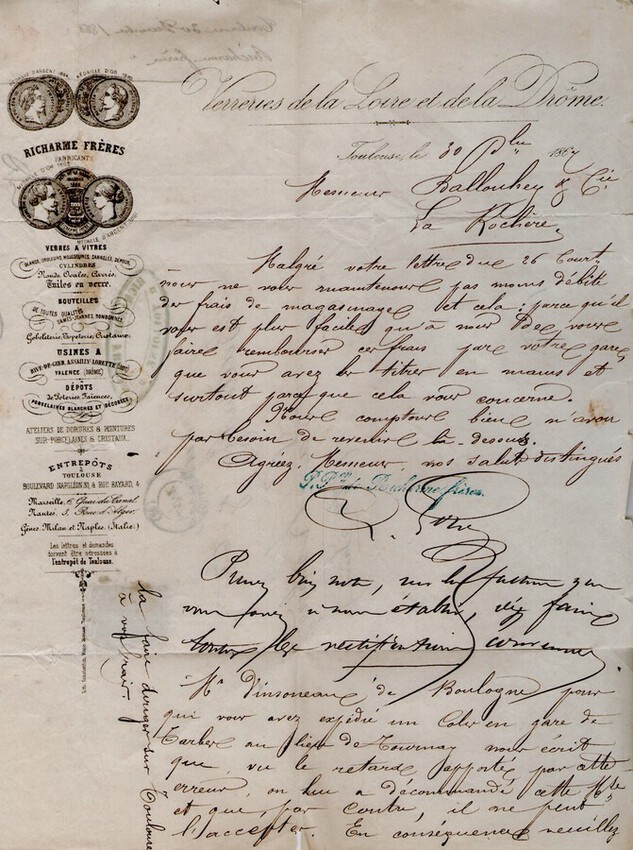 MÉDAILLE D'OR
RICHARME FRÈRES
FABRICANTS
VERRES A VITRES
BLANCS, COULEURS, MOUSSELINES, CANNELÉS, DÉPOLIS
CYLINDRES
Ronds, Ovales, Carrés.
Tuiles en verre.
BOUTEILLES
DE TOUTES QUALITÉS
DAMES-JEANNES, BONBONNES
Gobeleterie, Topeterie, Cristaux.
USINES A
RIVE-DE-GIER, ASSAILLY-LORETTE (Loire)
VALENCE (DRÔME)
DÉPÔTS
de Poteries, Faïences,
PORCELAINES BLANCHES ET DÉCORÉES
ATELIERS DE DORURES & PEINTURES
SUR PORCELAINES & CRISTAUX.
ENTREPÔTS
à
TOULOUSE
BOULEVARD NAPOLÉON, & RUE BAYARD, 4
Marseille, Quai du Canal.
Nantes, Rue d'Alger.
Gênes, Milan et Naples (Italie.)
Les lettres et demandes
doivent être adressées à
l'entrepôt de Toulouse.
Verreries de la Loire et de la Drôme.
Toulouse, le 30 186
Messieurs Ballouhey & Cie
La Rochère
Malgré votre lettre du 26 Court
nous ne vous maintenons pas moins débité
des frais de magasinage et cela : parce qu'il
vous est plus facile qu'à nous de vous
faire rembourser ces frais par votre gare,
que vous avez les titres en mains et
surtout parce que cela vous concerne.
Nous comptons bien n'avoir
pas besoin de revenir là-dessus.
Agréez, Messieurs, nos salut distingués
P. Pon de Richarme frères.
Prenez bien note, sur la facture que
vous avez à nous établir, d'y faire
toutes les rectifications
Mr d'insoneaux de Boulogne pour
qui vous avez expédié un Colis en gare de
Tarbes au lieu de Tournay nous écrit
que vu le retard apporté par cette
erreur, on lui a décommandé cette Mse
et que, par contre, il ne peut
l'accepter. En conséquence veuillez
la faire diriger sur Toulouse
à vos frais